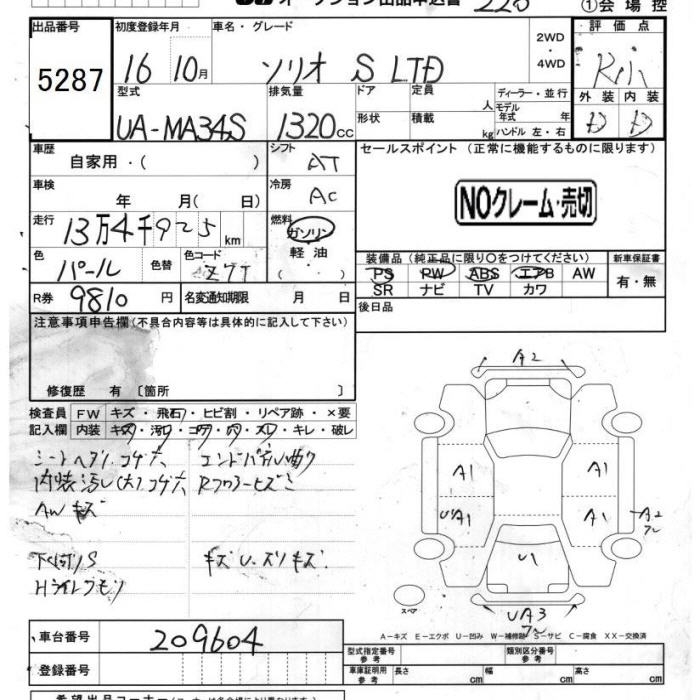 オークション出品申込書 228
①会場控
出品番号 初度登録年月 車名・グレード 2WD・4WD 評価点
5287 16 10月 ソリオ S LTD
型式 排気量 ドア 定員 人 ディーラー・並行 外装 内装
モデル年式 年
UA-MA34S 1320cc 形状 積載 kg ハンドル 左・右 D D
車歴 自家用・( ) シフト AT セールスポイント(正常に機能するものに限ります)
車検 年 月( 日) 冷房 AC
NOクレーム・売切
走行 13万4千925km 燃料 ガソリン
軽油
( )
色 パール 色替 色コード Z7T
装備品(純正品に限り○をつけてください) 新車保証書
PS PW ABS エアB AW 有・無
SR ナビ TV カワ
R券 9810円 名変通知期限 月 日 後日品
注意事項申告欄(不具合内容等は具体的に記入して下さい)
修復歴 有〔箇所 〕
検査員記入欄 FW キズ・飛石・ヒビ割・リペア跡・×要
内装 キズ・汚れ・コゲ・穴・スレ・キレ・破レ
シートヘタリ、コゲ穴 エンドパネル曲り
内装汚レ(大)コゲ穴 Rフロアーヒズミ
AWキズ
下廻りS キズ U、スリキズ
Hライトクモリ
A2
A1 A1
UA1 A1 A2
ワレ
U1
スペア
UA3
ワレ
A−キズ E−エクボ U−凹み W−補修跡 S−サビ C−腐食 XX−交換済
車台番号 209604
型式指定番号 参考 類別区分番号 参考
登録番号 車庫証明用 参考 長さ cm 幅 cm 高さ cm
希望出品コーナー